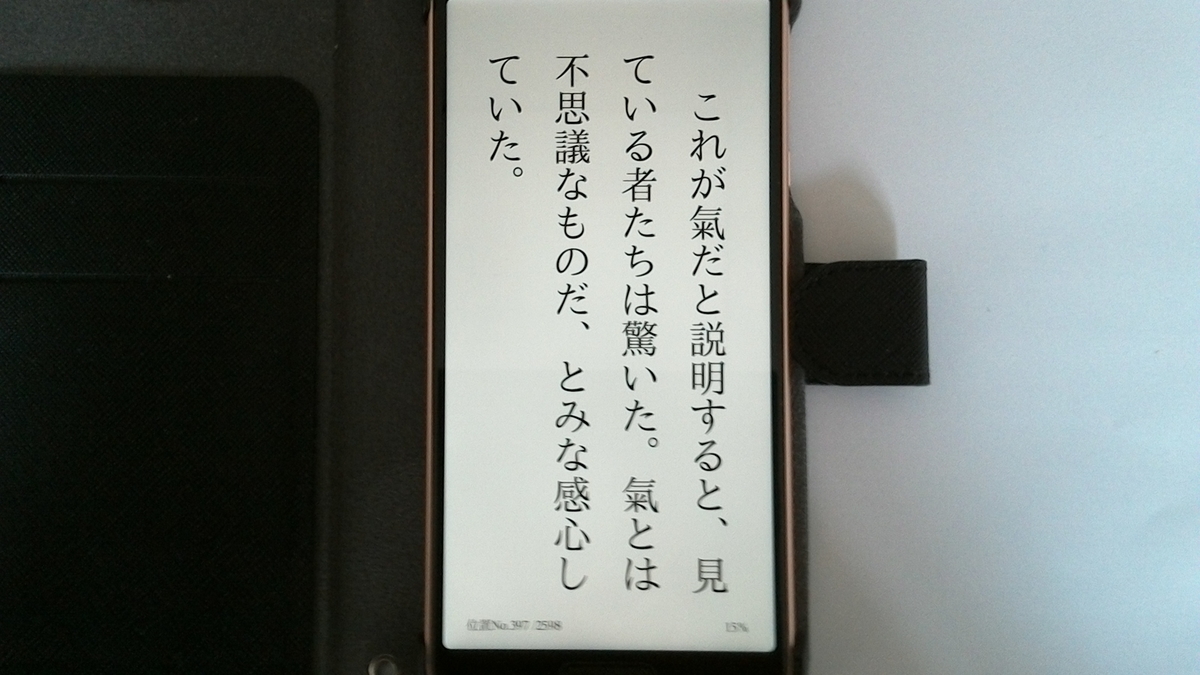 これが氣だと説明すると、見
ている者たちは驚いた。氣とは
不思議なものだ、とみな感心し
ていた。
位置No.397 / 2598
15%